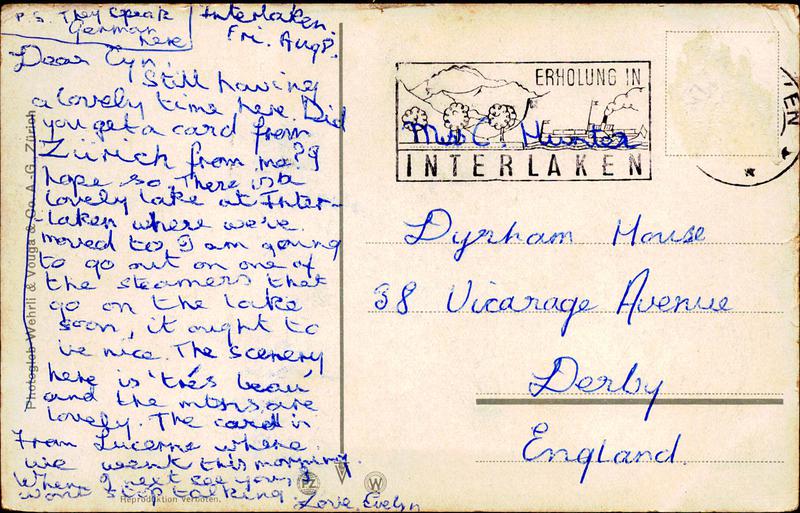 P.S. They speak
German
here
Interlaken.
Fri. Aug 8.
Dear Cyn,
Still having
a lovely time here. Did
you get a card from
Zürich from me? I
hope so. There is a
lovely lake at Inter-
laken where we're
moved to. I am going
to go out on one of
the steamers that
go on the lake
soon, it ought to
be nice. The scenery
here is 'trés beau'
and the mtns are
lovely. The card is
from Lucerne where
we went this morning.
When I next see you, I
wont stop talking.
Love, Evelyn
Photoglob-Wehrli & Vouga & Co. A.G. Zürich
Reproduktion verboten.
PZ
W
ERHOLUNG IN
INTERLAKEN
EN
Miss C. Hunter
Dyrham House
38 Vicarage Avenue
Derby
England.